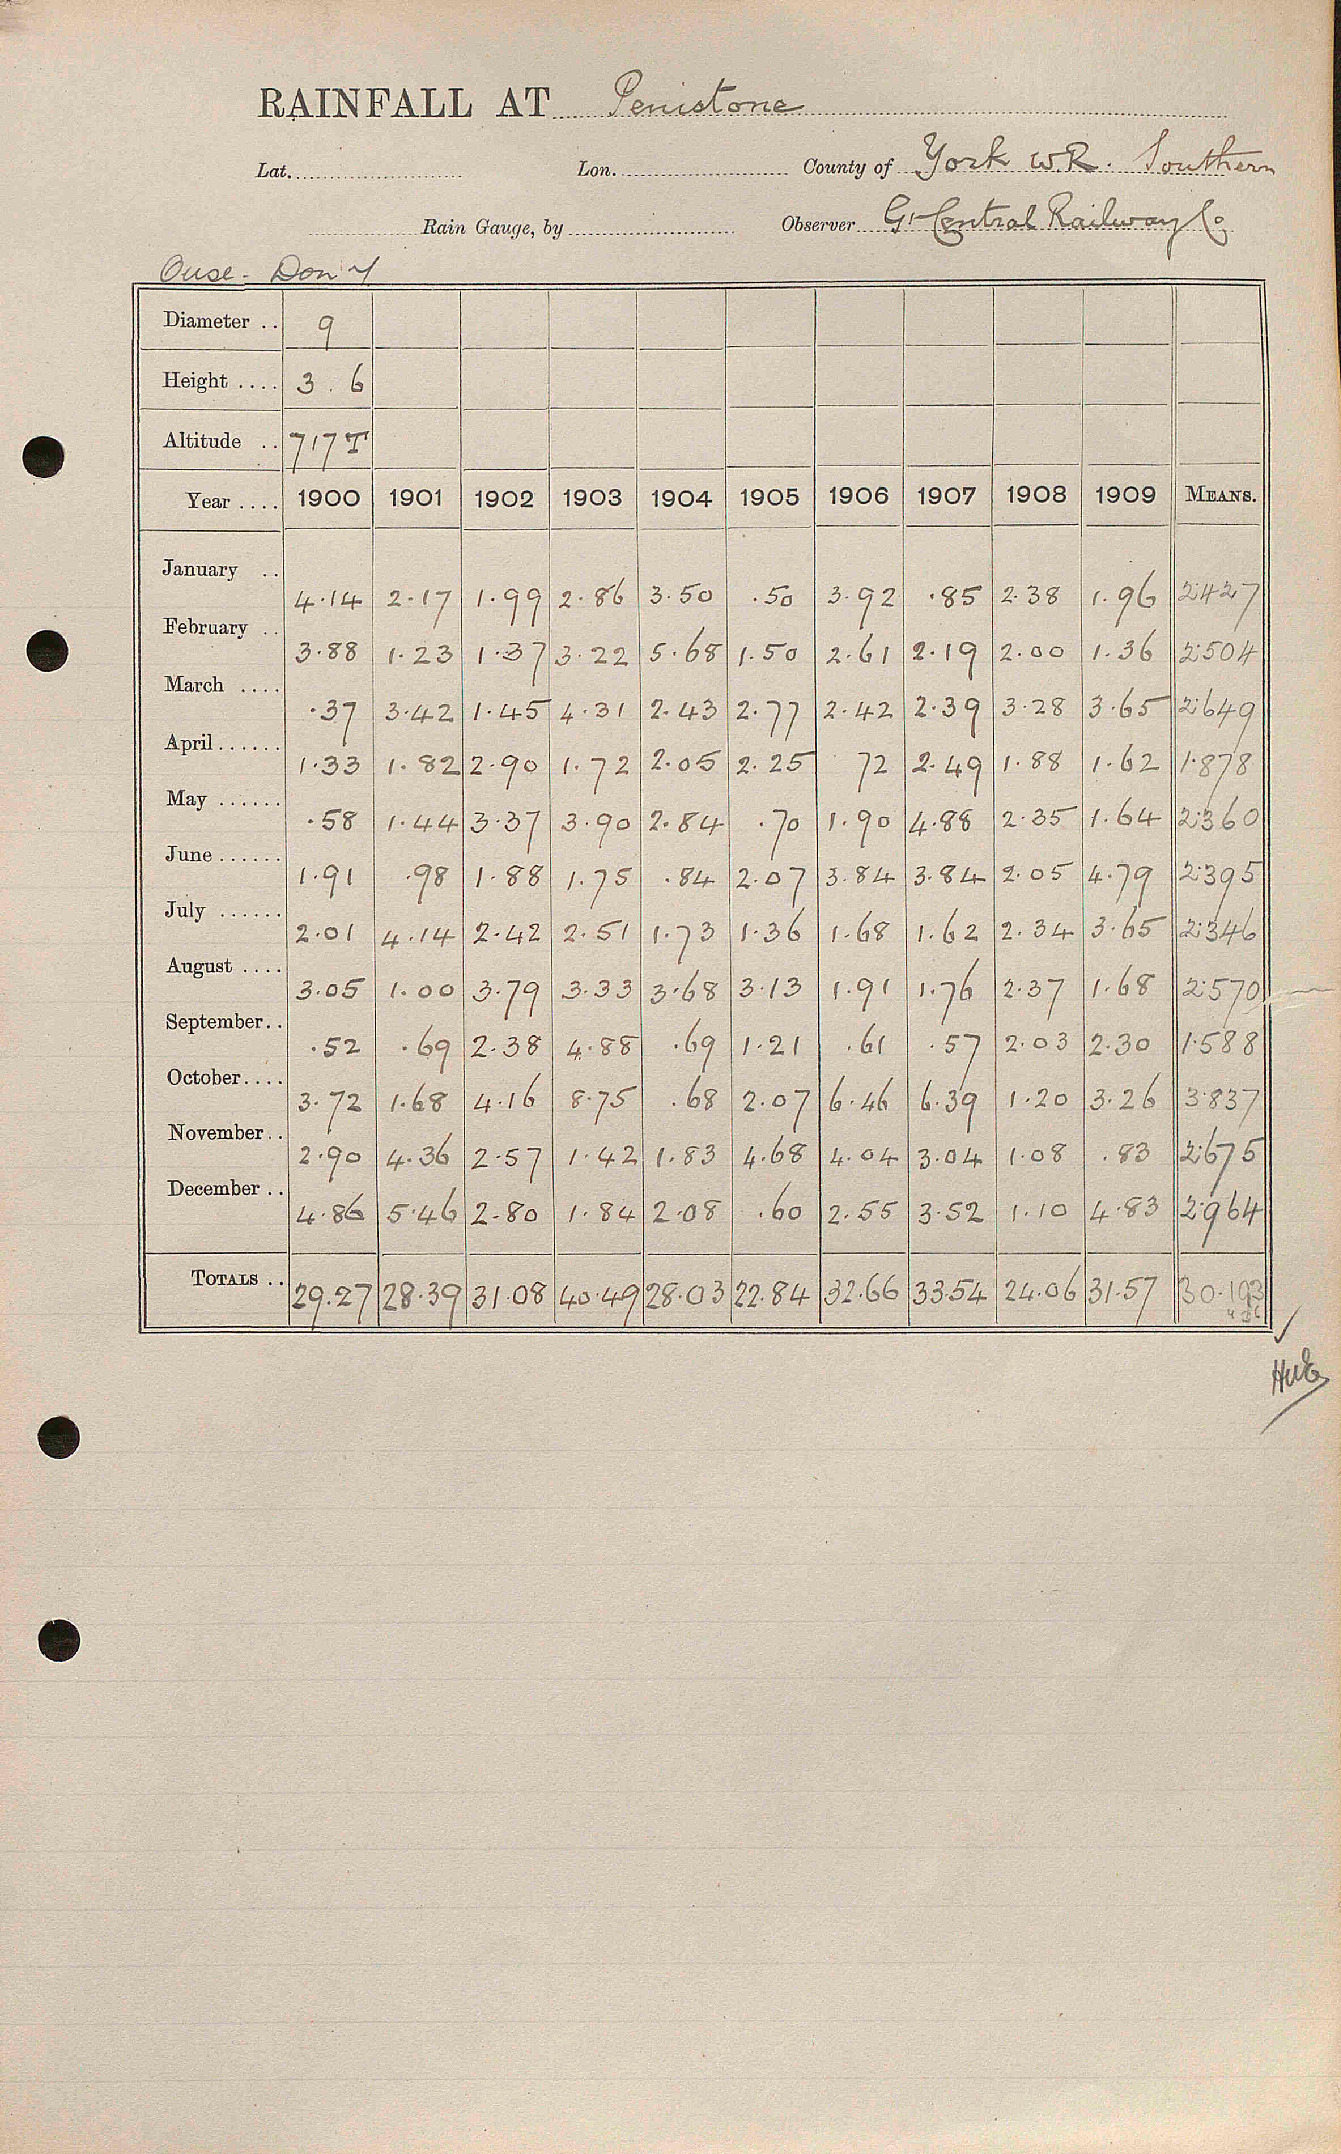 RAINFALL AT Penistone
Lat. Lon. County of York W.R. Southern
Rain Gauge, by Observer Gt Central Railway Co
Ouse - Don
Diameter .. 9
Height .... 3 . 6
Altitude .. 717 T
Year .... 1900 1901 1902 1903 1904 1905 1906 1907 1908 1909 MEANS.
January .. 4.14 2.17 1.99 2.86 3.50 .50 3.92 .85 2.38 1.96 2.427
February .. 3.88 1.23 1.37 3.22 5.68 1.50 2.61 2.19 2.00 1.36 2.504
March .... .37 3.42 1.45 4.31 2.43 2.77 2.42 2.39 3.28 3.65 2.649
April ...... 1.33 1.82 2.90 1.72 2.05 2.25 72 2.49 1.88 1.62 1.878
May ...... .58 1.44 3.37 3.90 2.84 .70 1.90 4.88 2.35 1.64 2.360
June ...... 1.91 .98 1.88 1.75 .84 2.07 3.84 3.84 2.05 4.79 2.395
July ...... 2.01 4.14 2.42 2.51 1.73 1.36 1.68 1.62 2.34 3.65 2.346
August .... 3.05 1.00 3.79 3.33 3.68 3.13 1.91 1.76 2.37 1.68 2.570
September.. .52 .69 2.38 4.88 .69 1.21 .61 .57 2.03 2.30 1.588
October.... 3.72 1.68 4.16 8.75 .68 2.07 6.46 6.39 1.20 3.26 3.837
November.. 2.90 4.36 2.57 1.42 1.83 4.68 4.04 3.04 1.08 .83 2.675
December .. 4.86 5.46 2.80 1.84 2.08 .60 2.55 3.52 1.10 4.83 2.964
TOTALS .. 29.27 28.39 31.08 40.49 28.03 22.84 32.66 33.54 24.06 31.57 30.193